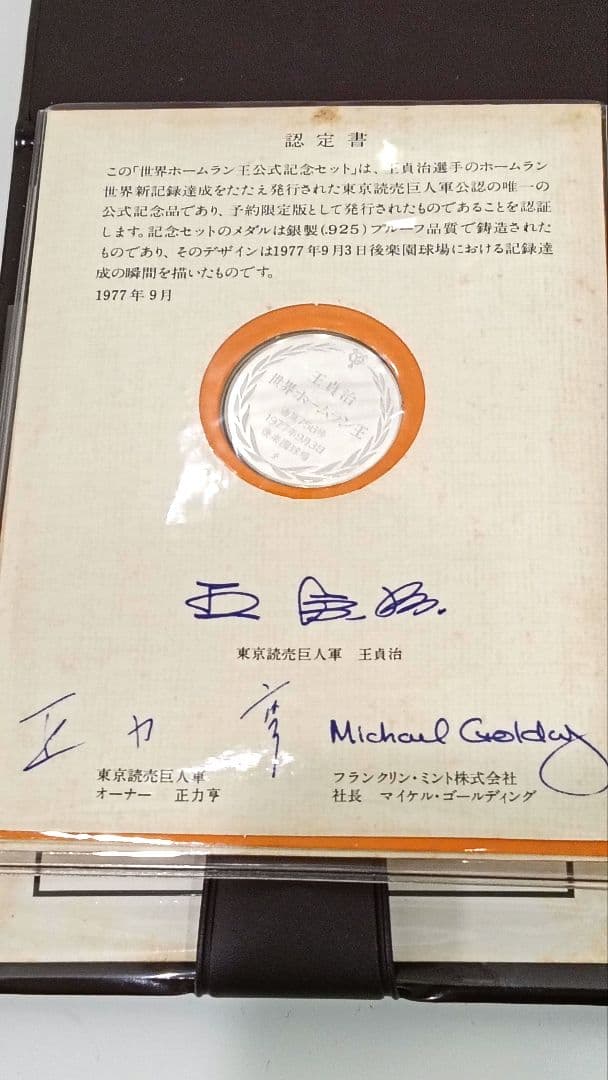 認定書
この「世界ホームラン王公式記念セット」は、王貞治選手のホームラン
世界新記録達成をたたえ発行された東京読売巨人軍公認の唯一の
公式記念品であり、予約限定版として発行されたものであることを認証
します。記念セットのメダルは銀製(.925)プルーフ品質で鋳造された
ものであり、そのデザインは1977年9月3日後楽園球場における記録達
成の瞬間を描いたものです。
1977年9月
王貞治
世界ホームラン王
1977年9月3日
後楽園球場
王貞治
東京読売巨人軍 王貞治
正力亨
Michael Golding
東京読売巨人軍
オーナー 正力亨
フランクリン・ミント株式会社
社長 マイケル・ゴールディング